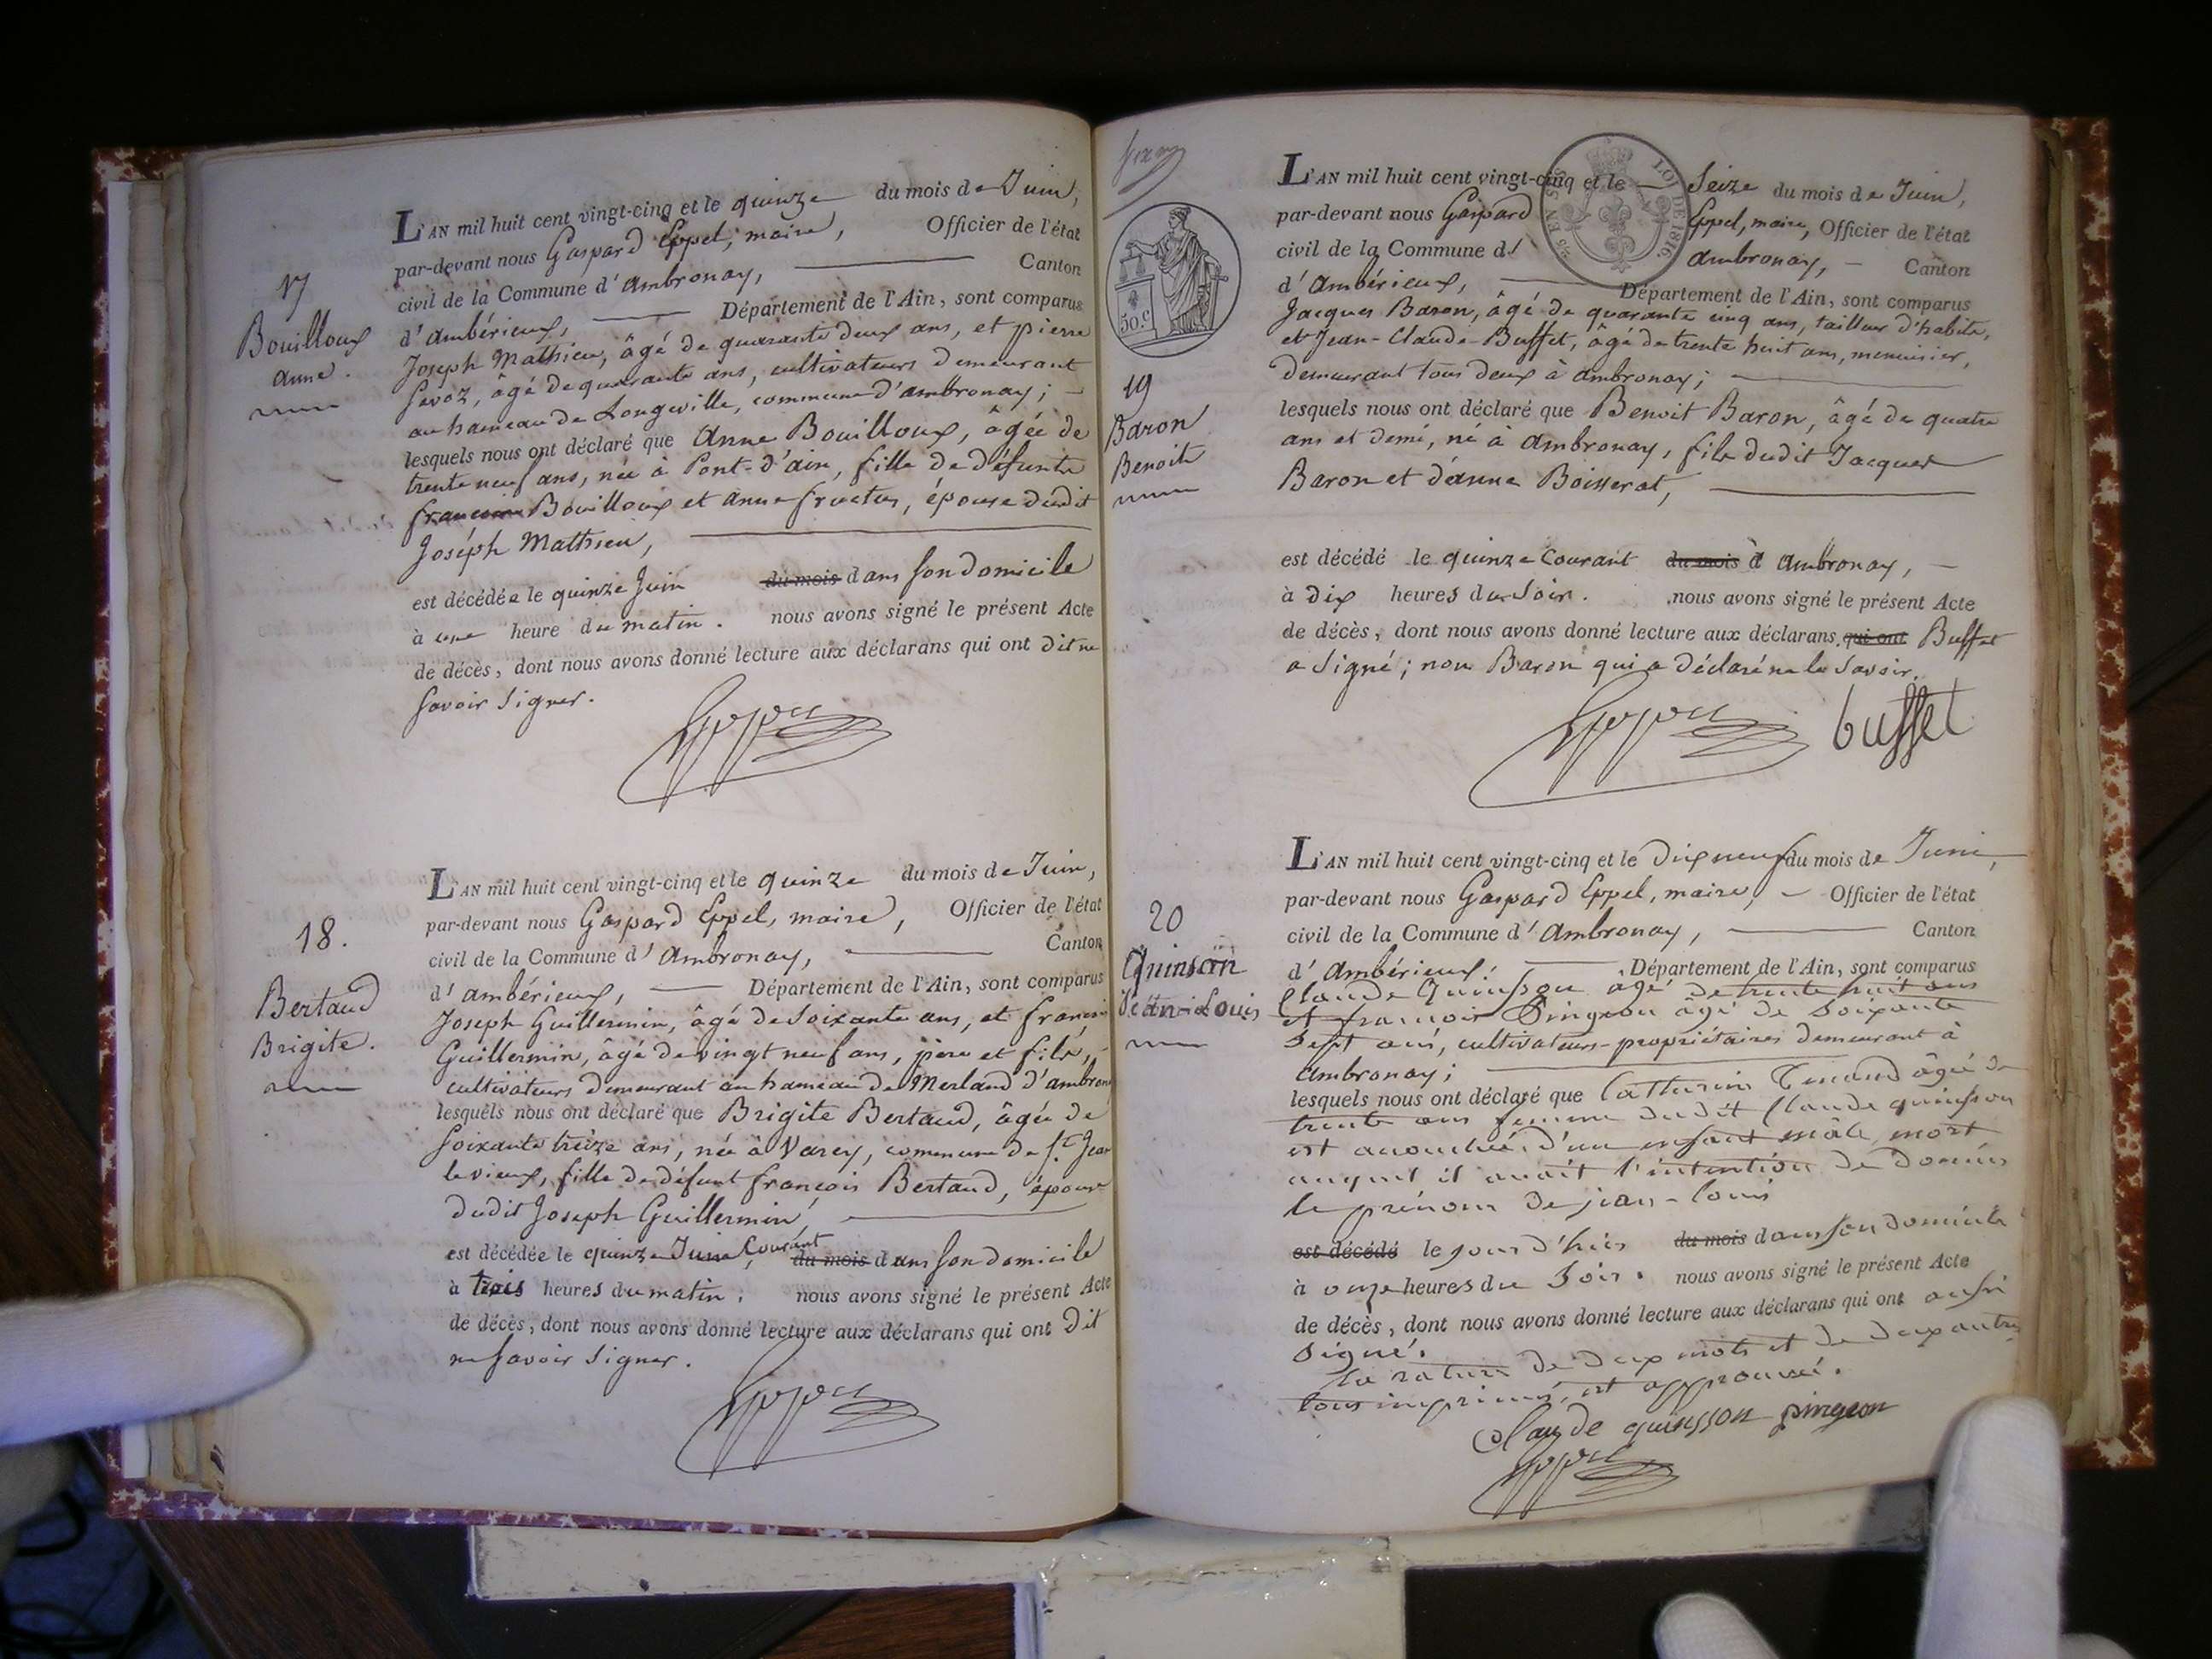 17
Bouilloux
anne.
L'AN mil huit cent vingt-cinq et le quinze du mois de Juin,
par-devant nous Gaspard Eppel, maire, Officier de l'état
civil de la Commune d'ambronay, Canton
d'ambérieux, Département de l'Ain, sont comparus
Joseph Mathieu, âgé de quarante deux ans, et pierre
Sevoz, âgé de quarante ans, cultivateurs demeurant
au hameau de Longeville, commune d'ambronay;
lesquels nous ont déclaré que Anne Bouilloux, âgée de
trente neuf ans, née à Pont-d'ain, fille de défunts
Bouilloux et anne fructus, épouse dudit
Joseph Mathieu,
est décédée le quinze Juin du mois dans son domicile
à une heure du matin. nous avons signé le présent Acte
de décès, dont nous avons donné lecture aux déclarans qui ont dit ne
savoir signer.
18.
Bertaud
Brigite.
L'AN mil huit cent vingt-cinq et le quinze du mois de Juin,
par-devant nous Gaspard Eppel, maire, Officier de l'état
civil de la Commune d'Ambronay, Canton
d'ambérieux, Département de l'Ain, sont comparus
Joseph Guillermin, âgé de soixante ans, et françois
Guillermin, âgé de vingt neuf ans, père et fils,
cultivateurs demeurant au hameau de Merland d'ambron
lesquels nous ont déclaré que Brigite Bertaud, âgée de
soixante treize ans, née à Varey, commune de St. Jean
le vieux, fille de défunt françois Bertaud, épouse
dudit Joseph Guillermin,
est décédée le quinze Juin Courant, du mois dans son domicile
à trois heures du matin. nous avons signé le présent Acte
de décès, dont nous avons donné lecture aux déclarans qui ont dit
ne savoir signer.
LOI DE 1816.
50.c
19
Baron
Benoit
L'AN mil huit cent vingt-cinq et le Seize du mois de Juin,
par-devant nous Gaspard Eppel, maire, Officier de l'état
civil de la Commune d' ambronay, Canton
d'Ambérieux, Département de l'Ain, sont comparus
Jacques Baron, âgé de quarante cinq ans, tailleur d'habits,
et Jean-Claude Buffet, âgé de trente huit ans, menuisier,
demeurant tous deux à ambronay;
lesquels nous ont déclaré que Benoit Baron, âgé de quatre
ans et demi, né à Ambronay, fils dudit Jacques
Baron et d'anne Boisserat,
est décédé le quinze Courant du mois à Ambronay,
à dix heures du Soir. nous avons signé le présent Acte
de décès, dont nous avons donné lecture aux déclarans qui ont Buffet
a signé; non Baron qui a déclaré ne le savoir.
buffet
20
Quinson
Jean-Louis
L'AN mil huit cent vingt-cinq et le Dix neuf du mois de Juin,
par-devant nous Gaspard Eppel, maire, Officier de l'état
civil de la Commune d'Ambronay, Canton
d'Ambérieux. Département de l'Ain, sont comparus
Claude Quinsson agé de trente huit ans
et françois Pingeon âgé de soixante
sept ans, cultivateurs-propriétaires demeurant à
Ambronay;
lesquels nous ont déclaré que Catherine âgée de
trente ans femme dudit Claude quinsson
est accouchée d'un enfant mâle mort
auquel il avait l'intention de donner
le prénom de jean-louis
est décédé le jour d'hier du mois dans son domicile
à onze heures du Soir. nous avons signé le présent Acte
de décès, dont nous avons donné lecture aux déclarans qui ont aussi
Signé.
la rature de deux mots et de deux autres
tous imprimés, est approuvée.
Claude quinsson pingeon